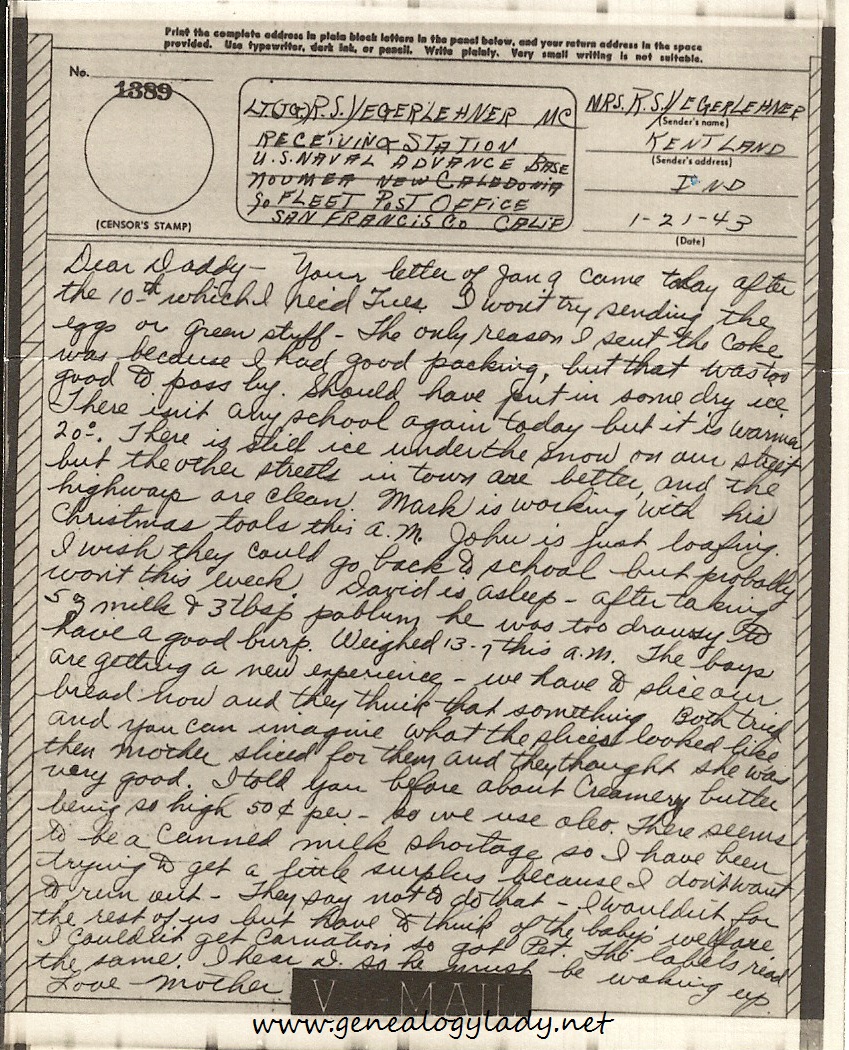 Print the complete address in plain block letters in the panel below, and your return address in the space
provided. Use typewriter, dark ink, or pencil. Write plainly. Very small writing is not suitable.
No.
1389
(CENSOR'S STAMP)
LT(JG) R.S. VEGERLEHNER MC
RECEIVING STATION
U.S. NAVAL ADVANCE BASE
NOUMEA NEW CALEDONIA
℅ FLEET POST OFFICE
SAN FRANCISCO CALIF
MRS. R.S. VEGERLEHNER
(Sender's name)
KENTLAND
(Sender's address)
IND
1-21-43
(Date)
Dear Daddy - Your letter of Jan 9 came today after
the 10th which I rec'd Tues. I won't try sending the
eggs or green stuff - The only reason I sent the coke
was because I had good packing, but that was too
good to pass by. Should have put in some dry ice.
There isn't any school again today but it is warmer
20°. There is still ice under the snow on our street
but the other streets in town are better, and the
highways are clean. Mark is working with his
Christmas tools this a.m. John is just loafing.
I wish they could go back to school but probably
won't this week. David is asleep - after taking
5 ℥ milk & 3 tbsp pablum he was too drowsy to
have a good burp. Weighed 13-7 this a.m. The boys
are getting a new experience - we have to slice our
bread now and they think that something. Both tried
and you can imagine what the slices looked like
then mother sliced for them and they thought she was
very good. I told you before about Creamery butter
being so high 50¢ per - so we use oleo. There seems
to be a canned milk shortage so I have been
trying to get a little surplus because I don't want
to run out - They say not to do that - I wouldn't for
the rest of us but have to think of the baby's welfare
I couldn't get Carnation so got Pet. The labels read
the same. I hear D. so he must be waking up.
Love - Mother
V - MAIL
www.genealogylady.net